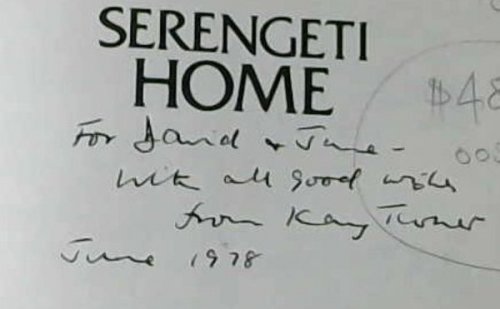 SERENGETI
HOME
$48
For David + June -
005
With all good wishes
from Kay Turner
June 1978